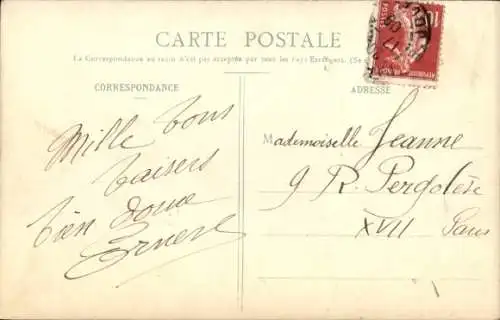 CARTE POSTALE
La Correspondance au recto n'est pas acceptée par tous les pays Étrangers. (Se
CORRESPONDANCE
ADRESSE
Mille bons
baisers
bien doux
Ernest
Mademoiselle Jeanne
9 R. Pergolèse
XVII Paris